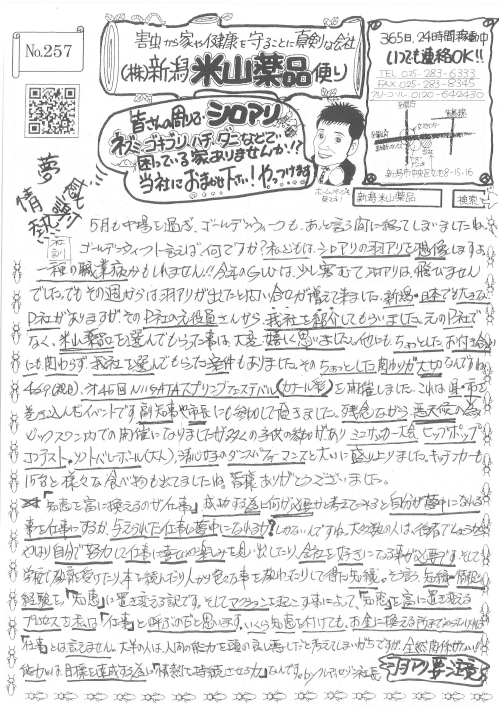 No.257
害虫から家や健康を守ることに真剣な会社
(株)新潟 米山薬品 便り
365日、24時間稼動中
いつでも連絡OK!!
TEL 025-283-6333
FAX 025-283-8345
フリーコール 0120-642430
新潟市中央区女池8-15-16
皆さんの周りで シロアリ
ネズミ、ゴキブリ、ハチ、ダニなどで
困っている家ありませんか!?
当社におまかせ下さい!やっつけます
夢
情熱
新潟 米山薬品
検索
5月も中場を過ぎ、ゴールデンウィークも、あっと言う間に終ってしまいましたね。
社訓
ゴールデンウィークと言えば何ですか?私どもは、シロアリの羽アリを想像しますよ。
一種の職業病かもしれません!!今年のGWは、少し寒むくて羽アリは、飛びません
でした。でもその週からは羽アリが出たと問い合せが増えて来ました。新潟・日本でも大きな
P社がありますが、そのP社の元役員さんから、我社を紹介してもらいました。元のP社で
なく、米山薬品を選んでもらった事は大変、嬉しく思いました。他にも、ちょっとしたお付き合い
にも関わらず、我社を選んでもらった案件もありました。そのちょっとした関わりが大切なんですね
4/29(祝日)、第46回NIIGATAスプリングフェスティバル
を開催しました。これは県・市を
巻き込んだイベントです。副知事や市長にも参加して頂きました。残念ながら、悪天候の為
ビックスワン内での開催になりましたが多くの子供の参加があり ミニサッカー大会 ヒップホップ
コンテスト、ソフトバレーボール(大人)、
ダンスパフォーマンスと大いに盛り上りました。キッチンカーも
15台と様々な食べ物も出てましたね。皆様ありがとうございました。
「知恵を富に換えるのが仕事」 成功する為に何が必要か考えてみると自分が夢中になれる
事を仕事にするか、与えられた仕事に夢中になれるか?しかないんですね。大多数の人は、後者でしょうから
やはり自分で努力して仕事に喜びや楽しみを見い出したり、会社を好きになる事が必要です。そして
学校で教えを受けたり本を読んだり人から色々な事を教わったりして得た知識。そう言う、知識・情報
経験を、「知恵」に置き変える訳です。そしてアクションを起こす事によって、「知恵」を富に置き変える
プロセスを私は「仕事」と呼ぶのだと思います。いくら知恵を付けても、お金に換える所まで
「仕事」とは言えません。大半の人は、人間の能力を頭の良し悪しだと考えてしまいがちですが、全然関係せない!
能力とは、目標を達成する為に「情熱を持続させる力」なんです。
羽アリ要注意